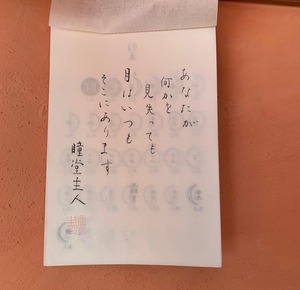 あなたが
何かを
見失っても
月はいつも
そこにあります
瞳堂主人